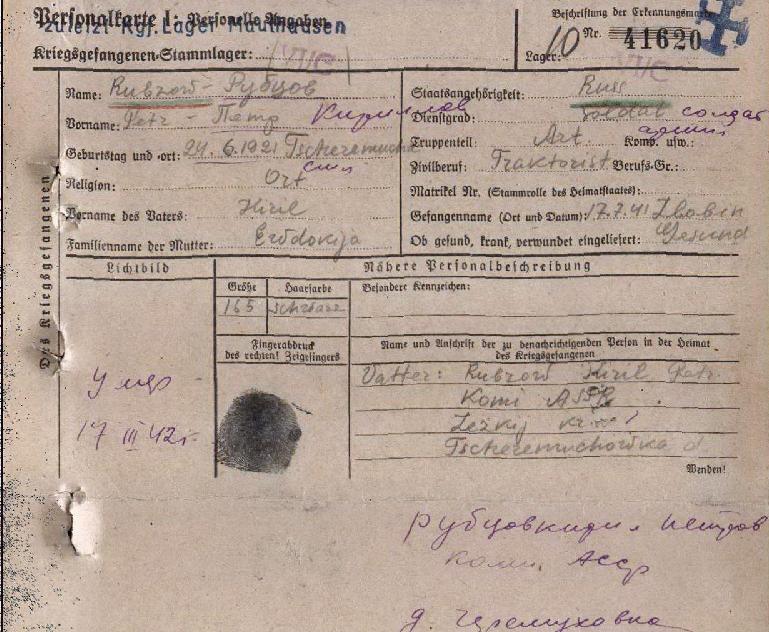 Personalkarte I: Personelle Angaben
zuletzt Kgf.Lager Mauthausen
Kriegsgefangenen-Stammlager: VIIC
Beschriftung der Erkennungsmarke
Nr. 41620
Lager: 10 VIIC
Des Kriegsgefangenen
Name: Rubzow - Рубцов
Vorname: Petr - Петр Кириллов
Geburtstag und -ort: 24.6.1921
Religion: Ort
Vorname des Vaters: Kiril
Familienname der Mutter: Ewdokija
Staatsangehörigkeit: Russ
Dienstgrad: Soldat солдат
Truppenteil: Art Komb. usw.:
Zivilberuf: Traktorist Berufs-Gr.:
Matrikel Nr. (Stammrolle des Heimatstaates):
Gefangenname (Ort und Datum): 17.7.41 Zlobin
Ob gesund, krank, verwundet eingeliefert: Gesund
Lichtbild
Nähere Personalbeschreibung
Größe
Haarfarbe
165
schwarz
Besondere Kennzeichen:
Fingerabdruck
des rechten! Zeigefingers
Name und Anschrift der zu benachrichtigenden Person in der Heimat
des Kriegsgefangenen
Vatter: Rubzow Kiril Petr.
Komi ASSR
Tscheremuchowka d
Wenden!
Умер
17 III 42г.
Рубцов Кирил Петров
Коми АССР
д. Черемуховка